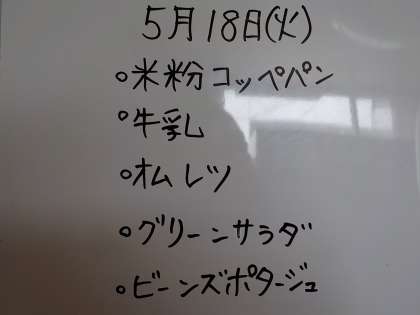 5月18日(火)
○米粉コッペパン
○牛乳
○オムレツ
○グリーンサラダ
○ビーンズポタージュ